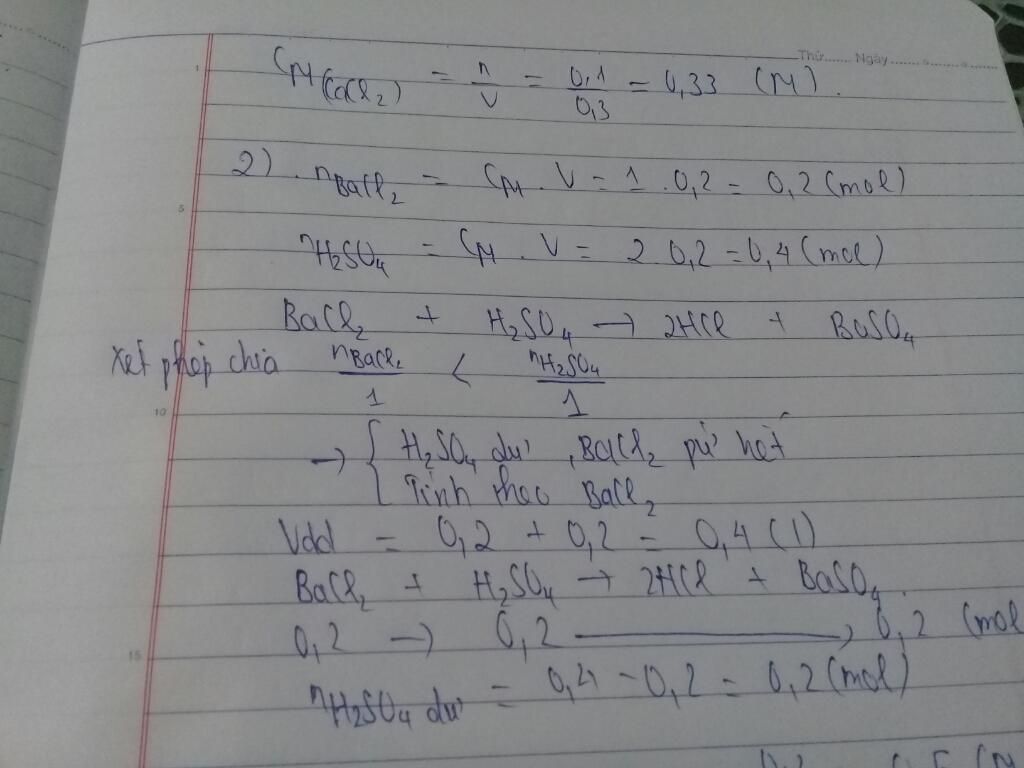 Thứ........ Ngày........
C_M(CaCl₂) = n/V = 0,1/0,3 = 0,33 (M).
2) . n_BaCl₂ = C_M . V = 1 . 0,2 = 0,2 (mol)
n_H₂SO₄ = C_M . V = 2 . 0,2 = 0,4 (mol)
BaCl₂ + H₂SO₄ → 2HCl + BaSO₄
Xét phép chia n_BaCl₂/1 < n_H₂SO₄/1
→ { H₂SO₄ dư, BaCl₂ pứ hết
Tính theo BaCl₂
Vdd = 0,2 + 0,2 = 0,4 (l)
BaCl₂ + H₂SO₄ → 2HCl + BaSO₄.
0,2 → 0,2 → 0,2 (mol
n_H₂SO₄ dư = 0,4 - 0,2 = 0,2 (mol)